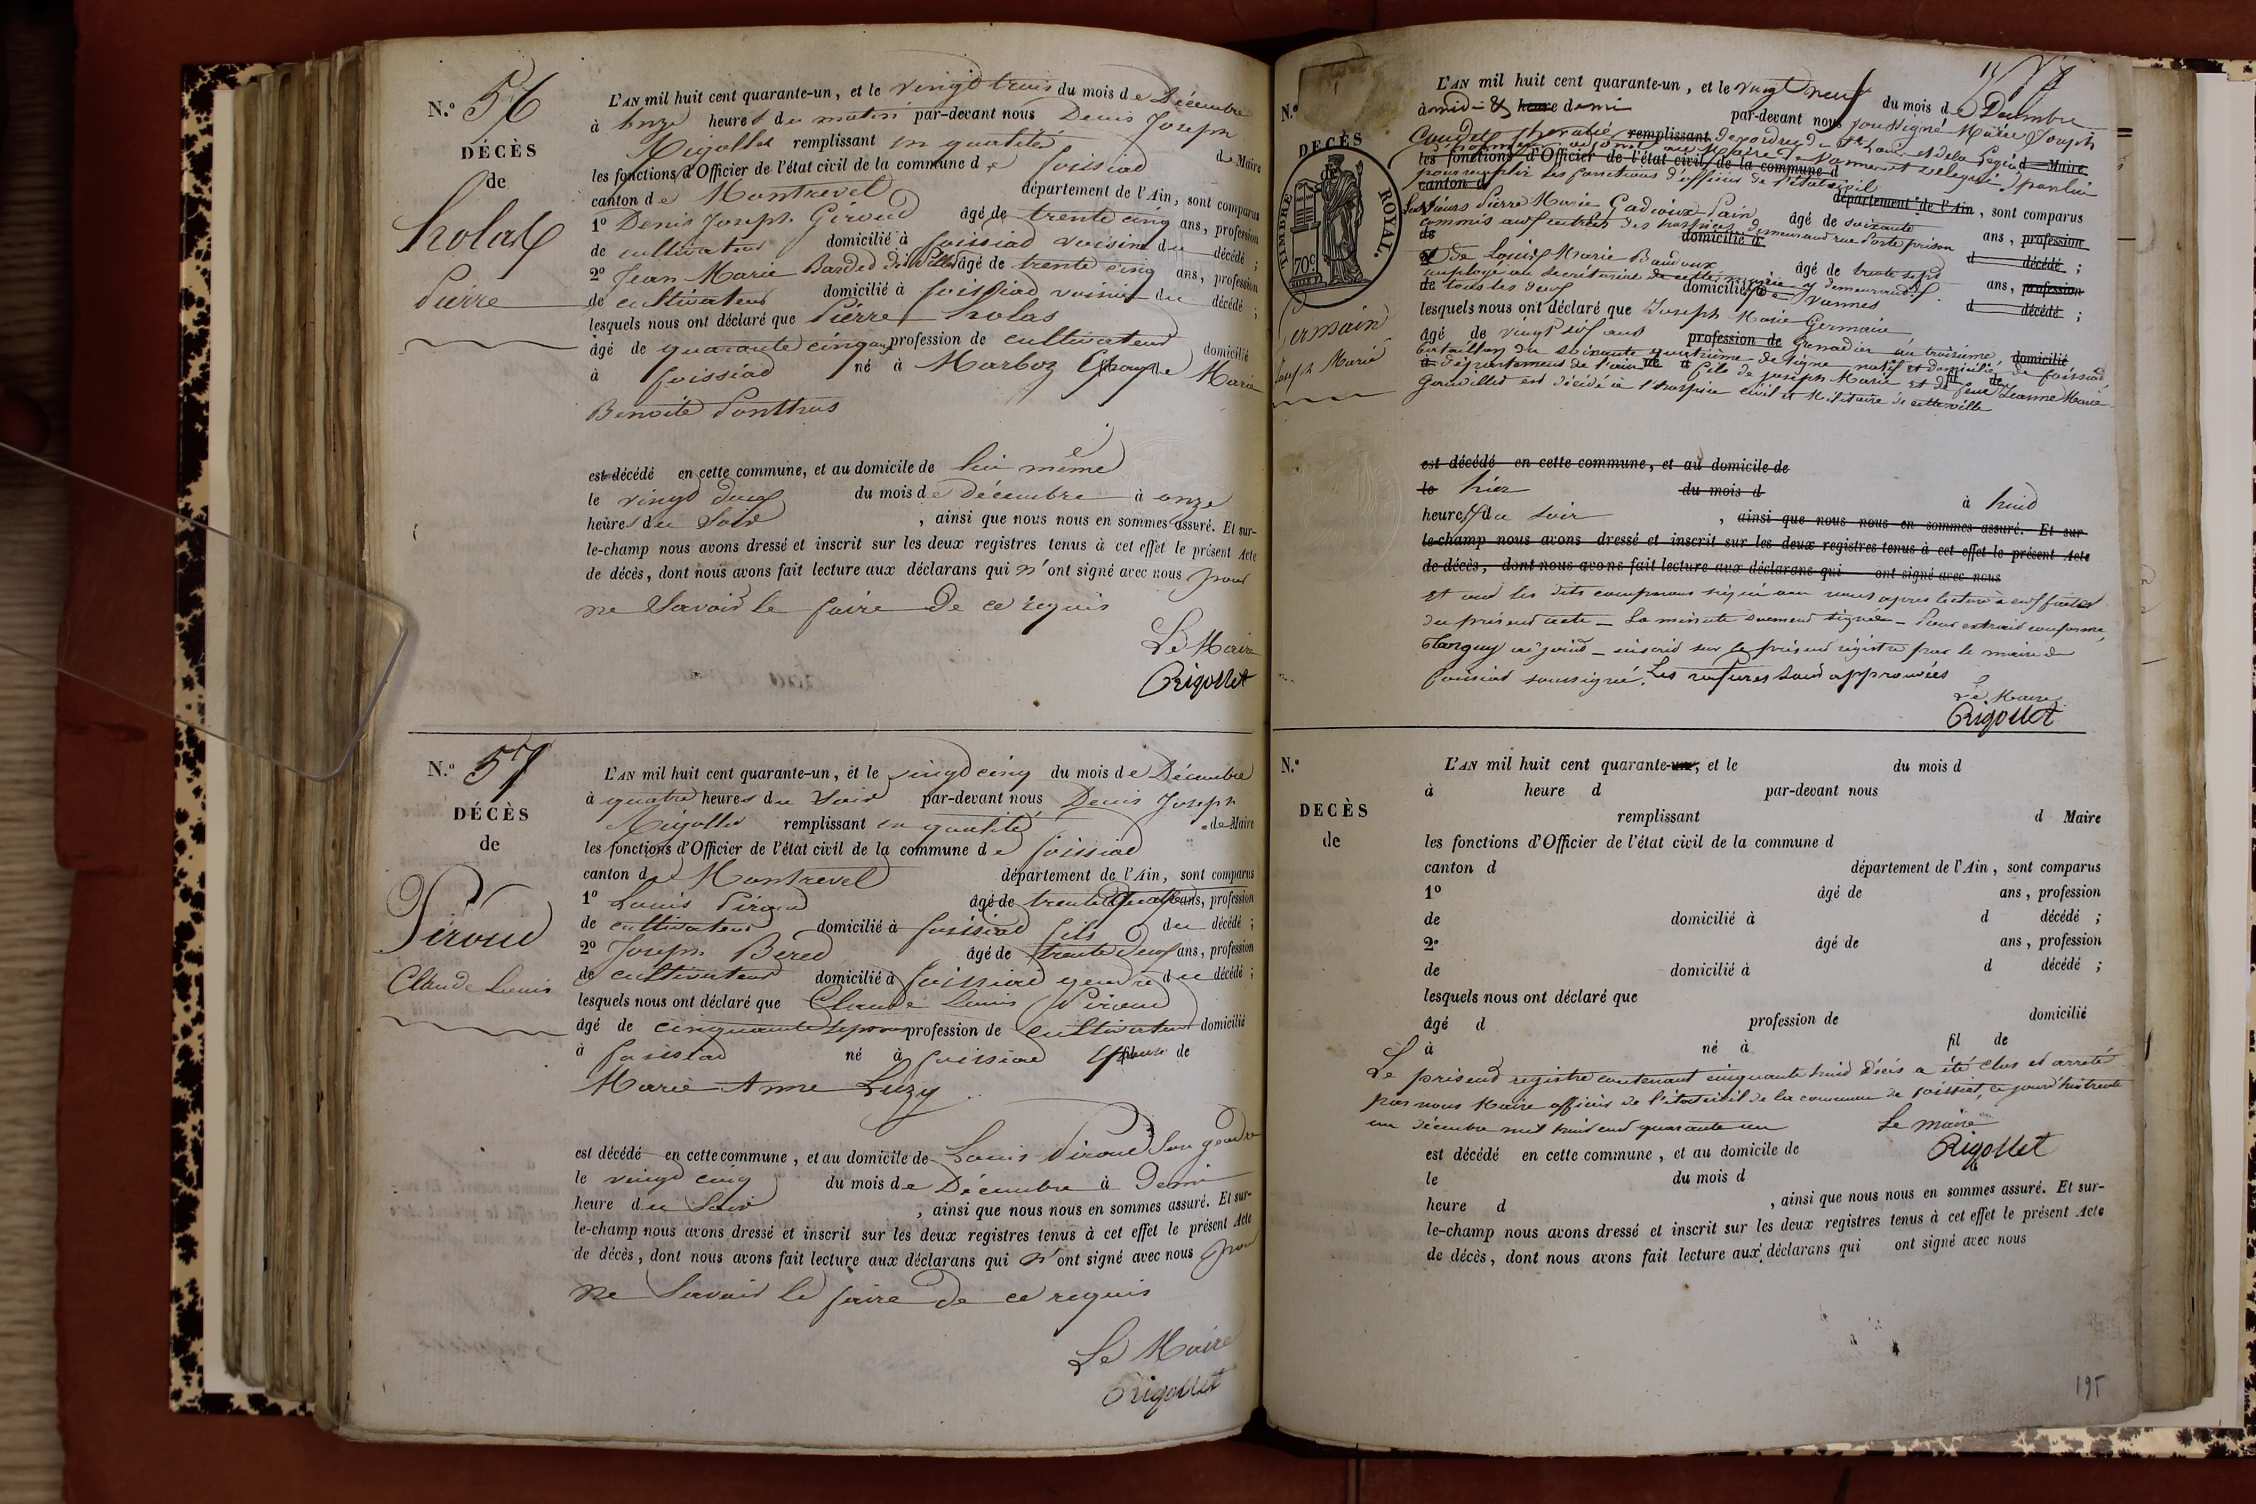 N.º 56
DÉCÈS
de
Cholas
Pierre
L'AN mil huit cent quarante-un, et le vingt trois du mois de Décembre
à onze heures du matin par-devant nous Denis Joseph
Rigollet remplissant en qualité de Maire
les fonctions d'Officier de l'état civil de la commune de foissiad
canton de Montrevel département de l'Ain, sont comparus
1º Denis Joseph Giroud âgé de trente cinq ans, profession
de cultivateur domicilié à foissiad voisin du décédé ;
2º Jean Marie âgé de trente cinq ans, profession
de cultivateur domicilié à foissiad voisin du décédé ;
lesquels nous ont déclaré que Pierre Cholas
âgé de quarante cinq ans profession de cultivateur domicilié
à foissiad né à Marboz Epoux de Marie
Benoite Ponthus
est décédé en cette commune, et au domicile de lui même
le vingt deux du mois de Décembre à onze
heures du Soir , ainsi que nous nous en sommes assuré. Et sur-
le-champ nous avons dressé et inscrit sur les deux registres tenus à cet effet le présent Acte
de décès, dont nous avons fait lecture aux déclarans qui n'ont signé avec nous pour
ne Savoir le faire de ce requis
Le Maire
Rigollet
N.º 57
DÉCÈS
de
Piroud
Claude Louis
L'AN mil huit cent quarante-un, et le vingt cinq du mois de Décembre
à quatre heures du Soir par-devant nous Denis Joseph
Rigollet remplissant en qualité de Maire
les fonctions d'Officier de l'état civil de la commune de foissiad
canton de Montrevel département de l'Ain, sont comparus
1º Louis Piroud âgé de trente quatre ans, profession
de cultivateur domicilié à foissiad fils du décédé ;
2º Joseph Bered âgé de trente deux ans, profession
de cultivateur domicilié à foissiad gendre du décédé ;
lesquels nous ont déclaré que Claude Louis Piroud
âgé de cinquante sept ans profession de cultivateur domicilié
à foissiad né à foissiad Epoux de
Marie Anne Luzy
est décédé en cette commune, et au domicile de Louis Piroud Son gendre
le vingt cinq du mois de Décembre à Demi
heure du Soir , ainsi que nous nous en sommes assuré. Et sur-
le-champ nous avons dressé et inscrit sur les deux registres tenus à cet effet le présent Acte
de décès, dont nous avons fait lecture aux déclarans qui n'ont signé avec nous pour
ne Savoir le faire de ce requis
Le Maire
Rigollet
N.º
DECÈS
TIMBRE ROYAL.
70c
Germain
Joseph Marie
L'AN mil huit cent quarante-un, et le vingt neuf du mois de Décembre
à midi & heure demi par-devant nous soussigné Maire Joseph
remplissant de l'ordre de St Louis et de la Légion d Maire
les fonctions d'Officier de l'état civil de la commune d
canton d pour remplir les fonctions d'officier de l'état civil
département de l'Ain, sont comparus
Les Sieurs Pierre Marie Cadioux Pain âgé de soixante ans, profession
de commis aux entrées des hospices demeurant rue Porte prison domicilié à
et de Louis Marie Baudoux âgé de trente sept d décédé ;
employé au secrétariat de cette mairie y demeurant ans, profession
de tous les deux domiciliés de Vannes d décédé ;
lesquels nous ont déclaré que Joseph Marie Germain
âgé de vingt six ans profession de Grenadier au troisième domicilié
bataillon du soixante quatrième de ligne natif et domicilié de foissiad
à département de l'ain né à fils de joseph Marie et de feue Jeanne Marie
est décédé à l'hospice civil et Militaire de cette ville
est décédé en cette commune, et au domicile de
le hier du mois d à huit
heures du soir , ainsi que nous nous en sommes assuré. Et sur-
le-champ nous avons dressé et inscrit sur les deux registres tenus à cet effet le présent Acte
de décès, dont nous avons fait lecture aux déclarans qui ont signé avec nous
et ont les dits comparans signé avec nous apres lecture à eux faite
du présent acte – La minute dument signée – Pour extrait conforme,
Tanguy adjoint – inscrit sur le présent régistre par le maire de
foissiat soussigné. Les ratures sont approuvées
Le Maire
Rigollet
N.º
DECÈS
de
L'AN mil huit cent quarante-un, et le du mois d
à heure d par-devant nous
remplissant d Maire
les fonctions d'Officier de l'état civil de la commune d
canton d département de l'Ain, sont comparus
1º âgé de ans, profession
de domicilié à d décédé ;
2º âgé de ans, profession
de domicilié à d décédé ;
lesquels nous ont déclaré que
âgé d profession de domicilié
à né à fil de
Le présent registre contenant cinquante huit décès a été clos et arreté
par nous Maire officier de l'état civil de la commune de foissiat, ce jourd'hui trente
un décembre mil huit cent quarante un Le maire
Rigollet
est décédé en cette commune, et au domicile de
le du mois d
heure d , ainsi que nous nous en sommes assuré. Et sur-
le-champ nous avons dressé et inscrit sur les deux registres tenus à cet effet le présent Acte
de décès, dont nous avons fait lecture aux déclarans qui ont signé avec nous
195